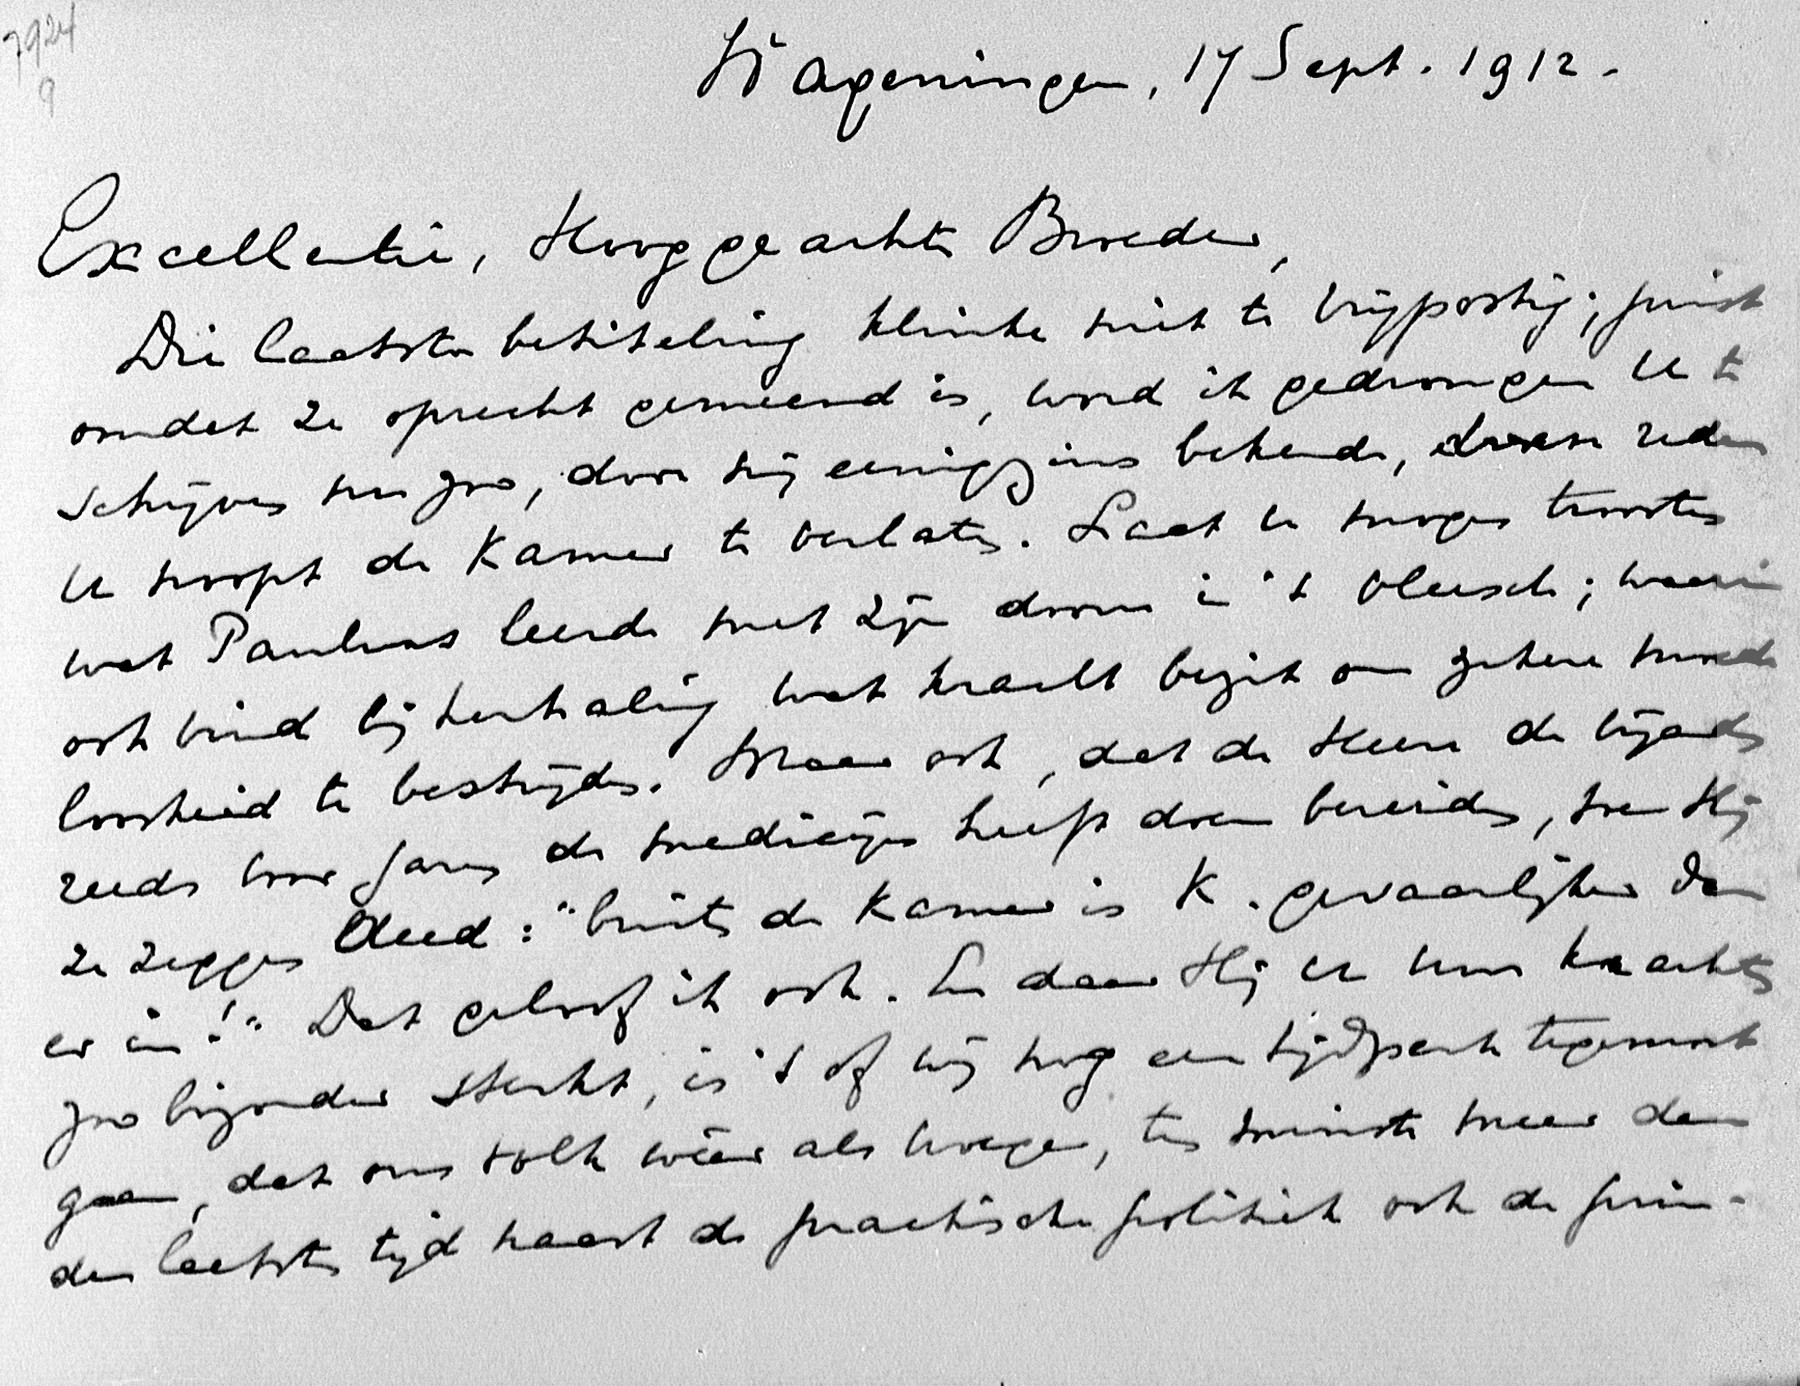 7924
9
Wageningen, 17 Sept. 1912.
Excellentie, Hooggeachte Broeder,
Die laatste betiteling klinke niet te vrijpostig; juist
omdat ze oprecht gemeend is, word ik gedrongen U te
schrijven nu zoo, door mij eenigszins bekende, reden
U noopt de Kamer te verlaten. Laat U mogen troosten
wat Paulus leerde met zijn doorn in 't vleesch; waarin
ook vind bij herhaling wat kracht bezit om zekere moede-
loosheid te bestrijden. Maar ook, dat de Heere de vijanden
reeds voor jaren de medicijn heeft doen bereiden, toen Hij
ze zeggen deed: "buiten de Kamer is K. gevaarlijker dan
er in!" Dat geloof ik ook. En daar Hij U uw krachten
zoo bijzonder sterkt, is 't of wij nog een tijdperk tegemoet
gaan, dat ons volk wéér als vroeger, ten minste meer dan
den laatsten tijd naast de practische politiek ook de prin-